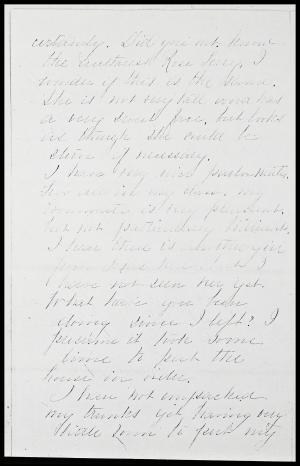 certainly. Did you not know
the Rose Mary, I
wonder if this is the same.
She is not very tall and has
a very sweet face, but looks
as though she could be
stern if necessary.
I have very nice
in my class. My
roommate is very pleasant,
but not particularly
I hear there is another girl
from I
have not seen her yet.
What have you been
doing since I left? I
presume it took some
time to put the
house in order.
I have not unpacked
my trunks yet, having very
little room to put my